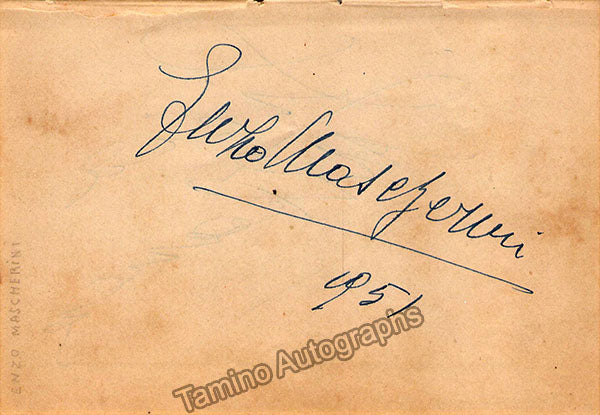 Enzo Mascherini
1951
ENZO MASCHERINI
Tamino Autographs